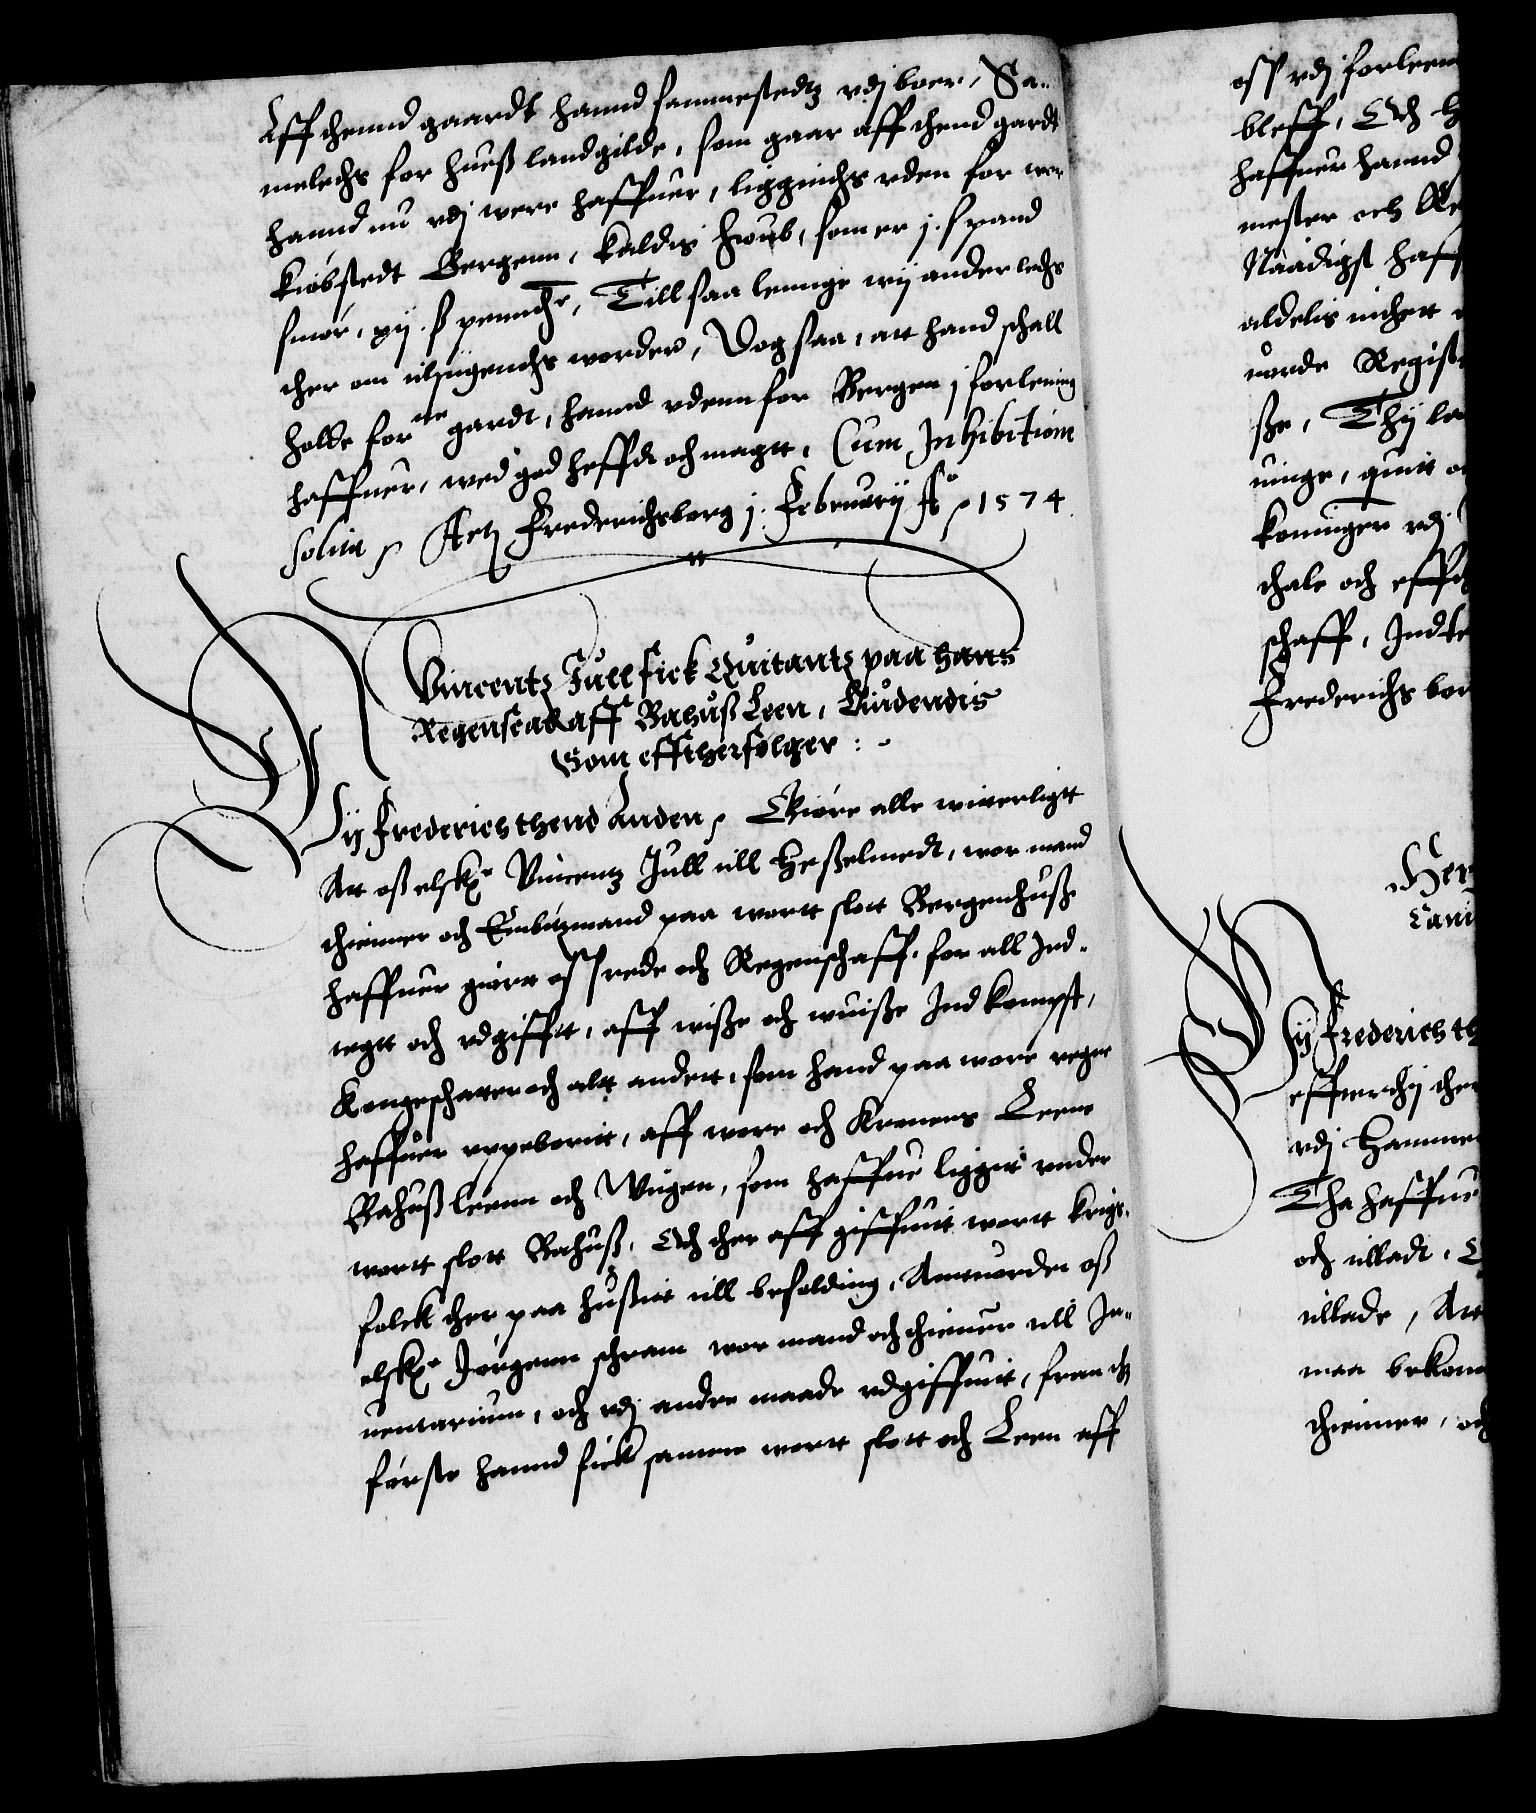 Aff thennd gaardt hannd sammestedtz vdj boer, Sa-
meledis for huess landgilde, som gaar aff thend gardt
hannd nu vdj were haffuer, liggindis vden for wor
kiøbstedt Bergenn, kaldis
smør, xij. ß penninge, Till saa lennge wij anderledis
ther om tilsigendis worder, Dog saa, att hand schall
holde forne gardt, hannd vdenn for Bergen j forlening
haffuer, wed god heffdt och magtt, Cum Inhibitione
solita / Actz Frederichsborg j. Februarij Ao / 1574.
Vincentz Juel fick Quitantz paa hans
Regenscab aff Bahuß Leen, Liudendis
Som effterfølger :-
Wij Frederich thend Anden / Giøre alle witterligtt
Att oß elskte Vincentz Jull till Heßelmedt, wor mand
thiener och Embitzmand paa wortt slott Bergenhuß
haffuer giørtt oß rede och Regenschaff, for all Ind-
tegtt och vdgifftt, aff wiße och wuiße Indkompst,
Kongeschatter och altt andett, som hand paa wore vegne
haffuer oppeborrit, aff wore och Kronens Leene
Bahuß leenn och Wiigen, som haffue liggit vnder
wortt slott Bahuß, Och ther aff giffuit wortt krigs-
folck ther paa hußit till besolding, Antuordet oß
elskte Jørgenn schram wor mand och thiener till In-
uentarium, och vdj andre maade vdgiffuit, fran thz
første hannd fick samme wortt slott och Leen aff
oß vdj forleen
bleff, Och
haffuer hannd
mester och Re
Naadigst haff
aldelis inthett
uorde Regist
ße, Thij la
ninge, quit o
koninger vdj
thale och effth
schaff, Indte
Frederichsbor
Her
Wij Frederich th
effterthij the
vdj Hammer
Tha haffue
och tilladt, O
tillade, Att
maa bekom
thienner, och